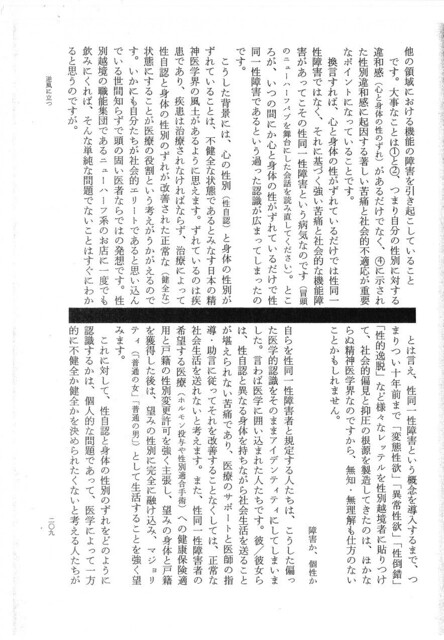 逆風に立つ
他の領域における機能の障害を引き起こしていること
です。大事なことは①と②、つまり自分の性別に対する
違和感（心と身体の性のずれ）があるだけでなく、④に示され
た性別違和感に起因する著しい苦痛と社会的不適応が重要
なポイントになっていることです。
換言すれば、心と身体の性がずれているだけでは性同一
性障害ではなく、それに基づく強い苦痛と社会的な機能障
害があってこその性同一性障害という病気なのです（冒頭
のニューハーフパブを舞台にした会話を読み直してください）。とこ
ろが、いつの間にか心と身体の性がずれているだけで性
同一性障害であるという過った認識が広まってしまったの
です。
こうした背景には、心の性別（性自認）と身体の性別が
ずれていることは、不健全な状態であるとみなす日本の精
神医学界の風土があるように思えます。ずれているのは疾
患であり、疾患は治療されなければならず、治療によって
性自認と身体の性別のずれが改善された正常な（健全な）
状態にすることが医療の役割という考えがうかがえるので
す。いかにも自分たちが社会的エリートであると思い込ん
でいる世間知らずで頭の固い医者ならではの発想です。性
別越境の職能集団であるニューハーフ系のお店に一度でも
飲みにくれば、そんな単純な問題でないことはすぐにわか
ると思うのですが。
とは言え、性同一性障害という概念を導入するまで、つ
まりつい十年前まで「変態性欲」「異常性欲」「性倒錯」
「性的逸脱」など様々なレッテルを性別越境者に貼りつけ
て、社会的偏見と抑圧の根源を製造してきたのは、ほかな
らぬ精神医学界なのですから、無知・無理解も仕方のない
ことかもしれません。
障害か、個性か
自らを性同一性障害者と規定する人たちは、こうした偏っ
た医学的認識をそのままアイデンティティにしてしまいま
した。言わば医学に囲い込まれた人たちです。彼／彼女ら
は、性自認と異なる身体を持ちながら社会生活を送ること
が堪えられない苦痛であり、医療のサポートと医師の指
導・助言に従ってそれを改善することなくしては、正常な
社会生活を送れないと考えます。また、性同一性障害者の
希望する医療（ホルモン投与や性別適合手術）への健康保険適
用と戸籍の性別変更許可を強く主張し、望みの身体と戸籍
を獲得した後は、望みの性別に完全に融け込み、マジョリ
ティ（「普通の女」「普通の男」）として生活することを強く望
みます。
これに対して、性自認と身体の性別のずれをどのように
認識するかは、個人的な問題であって、医学によって一方
的に不健全か健全かを決められたくないと考える人たちが
二〇九